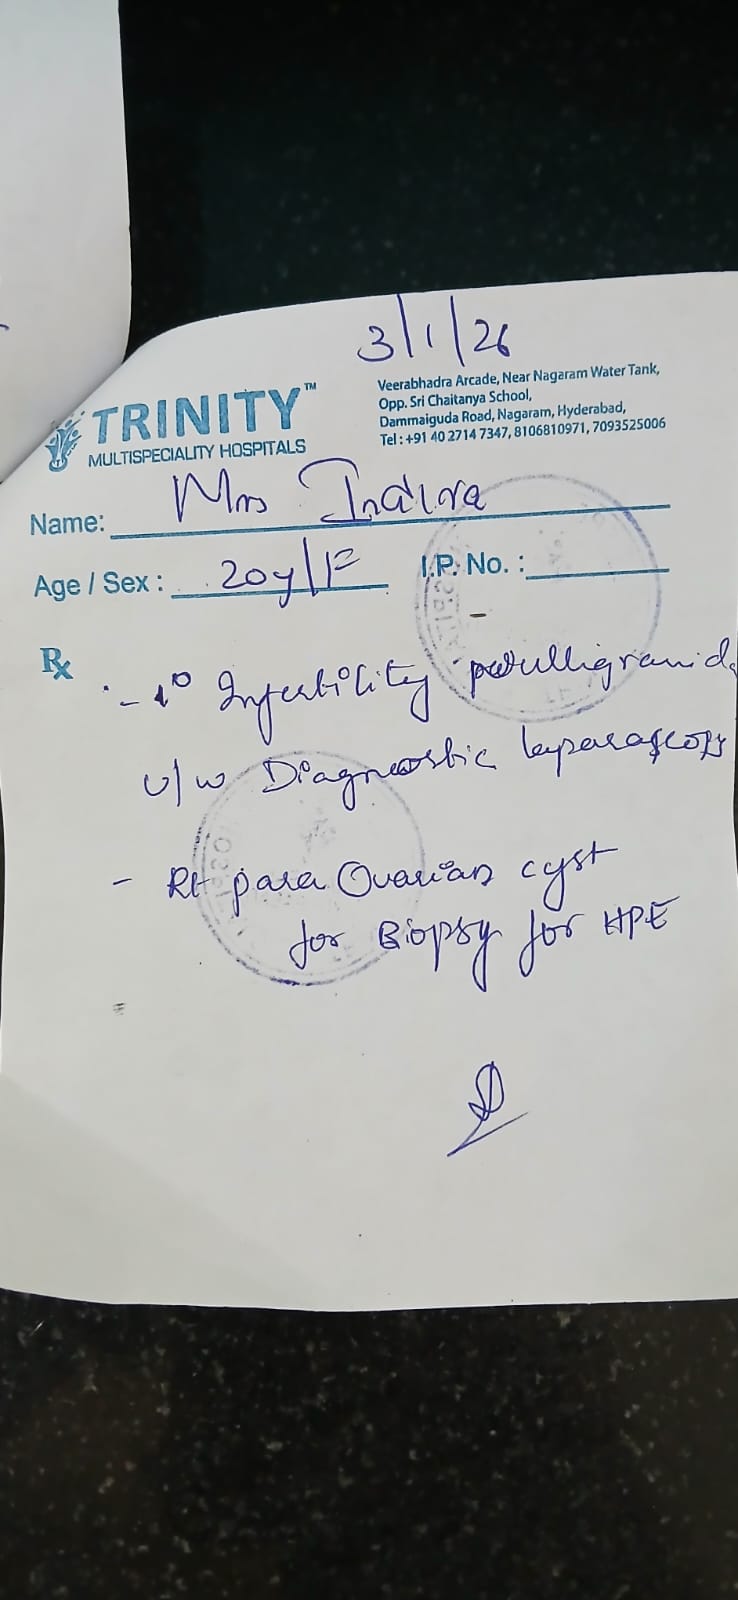 3/1/26
TRINITY™
MULTISPECIALITY HOSPITALS
Veerabhadra Arcade, Near Nagaram Water Tank,
Opp. Sri Chaitanya School,
Dammaiguda Road, Nagaram, Hyderabad,
Tel : +91 40 2714 7347, 8106810971, 7093525006
Name: Mrs Indira
Age / Sex : 20y/F I.P. No. :
Rx
- 1° Infertility
u/w Diagnostic laparascopy
- Rt para Ovarian cyst
for Biopsy for HPE